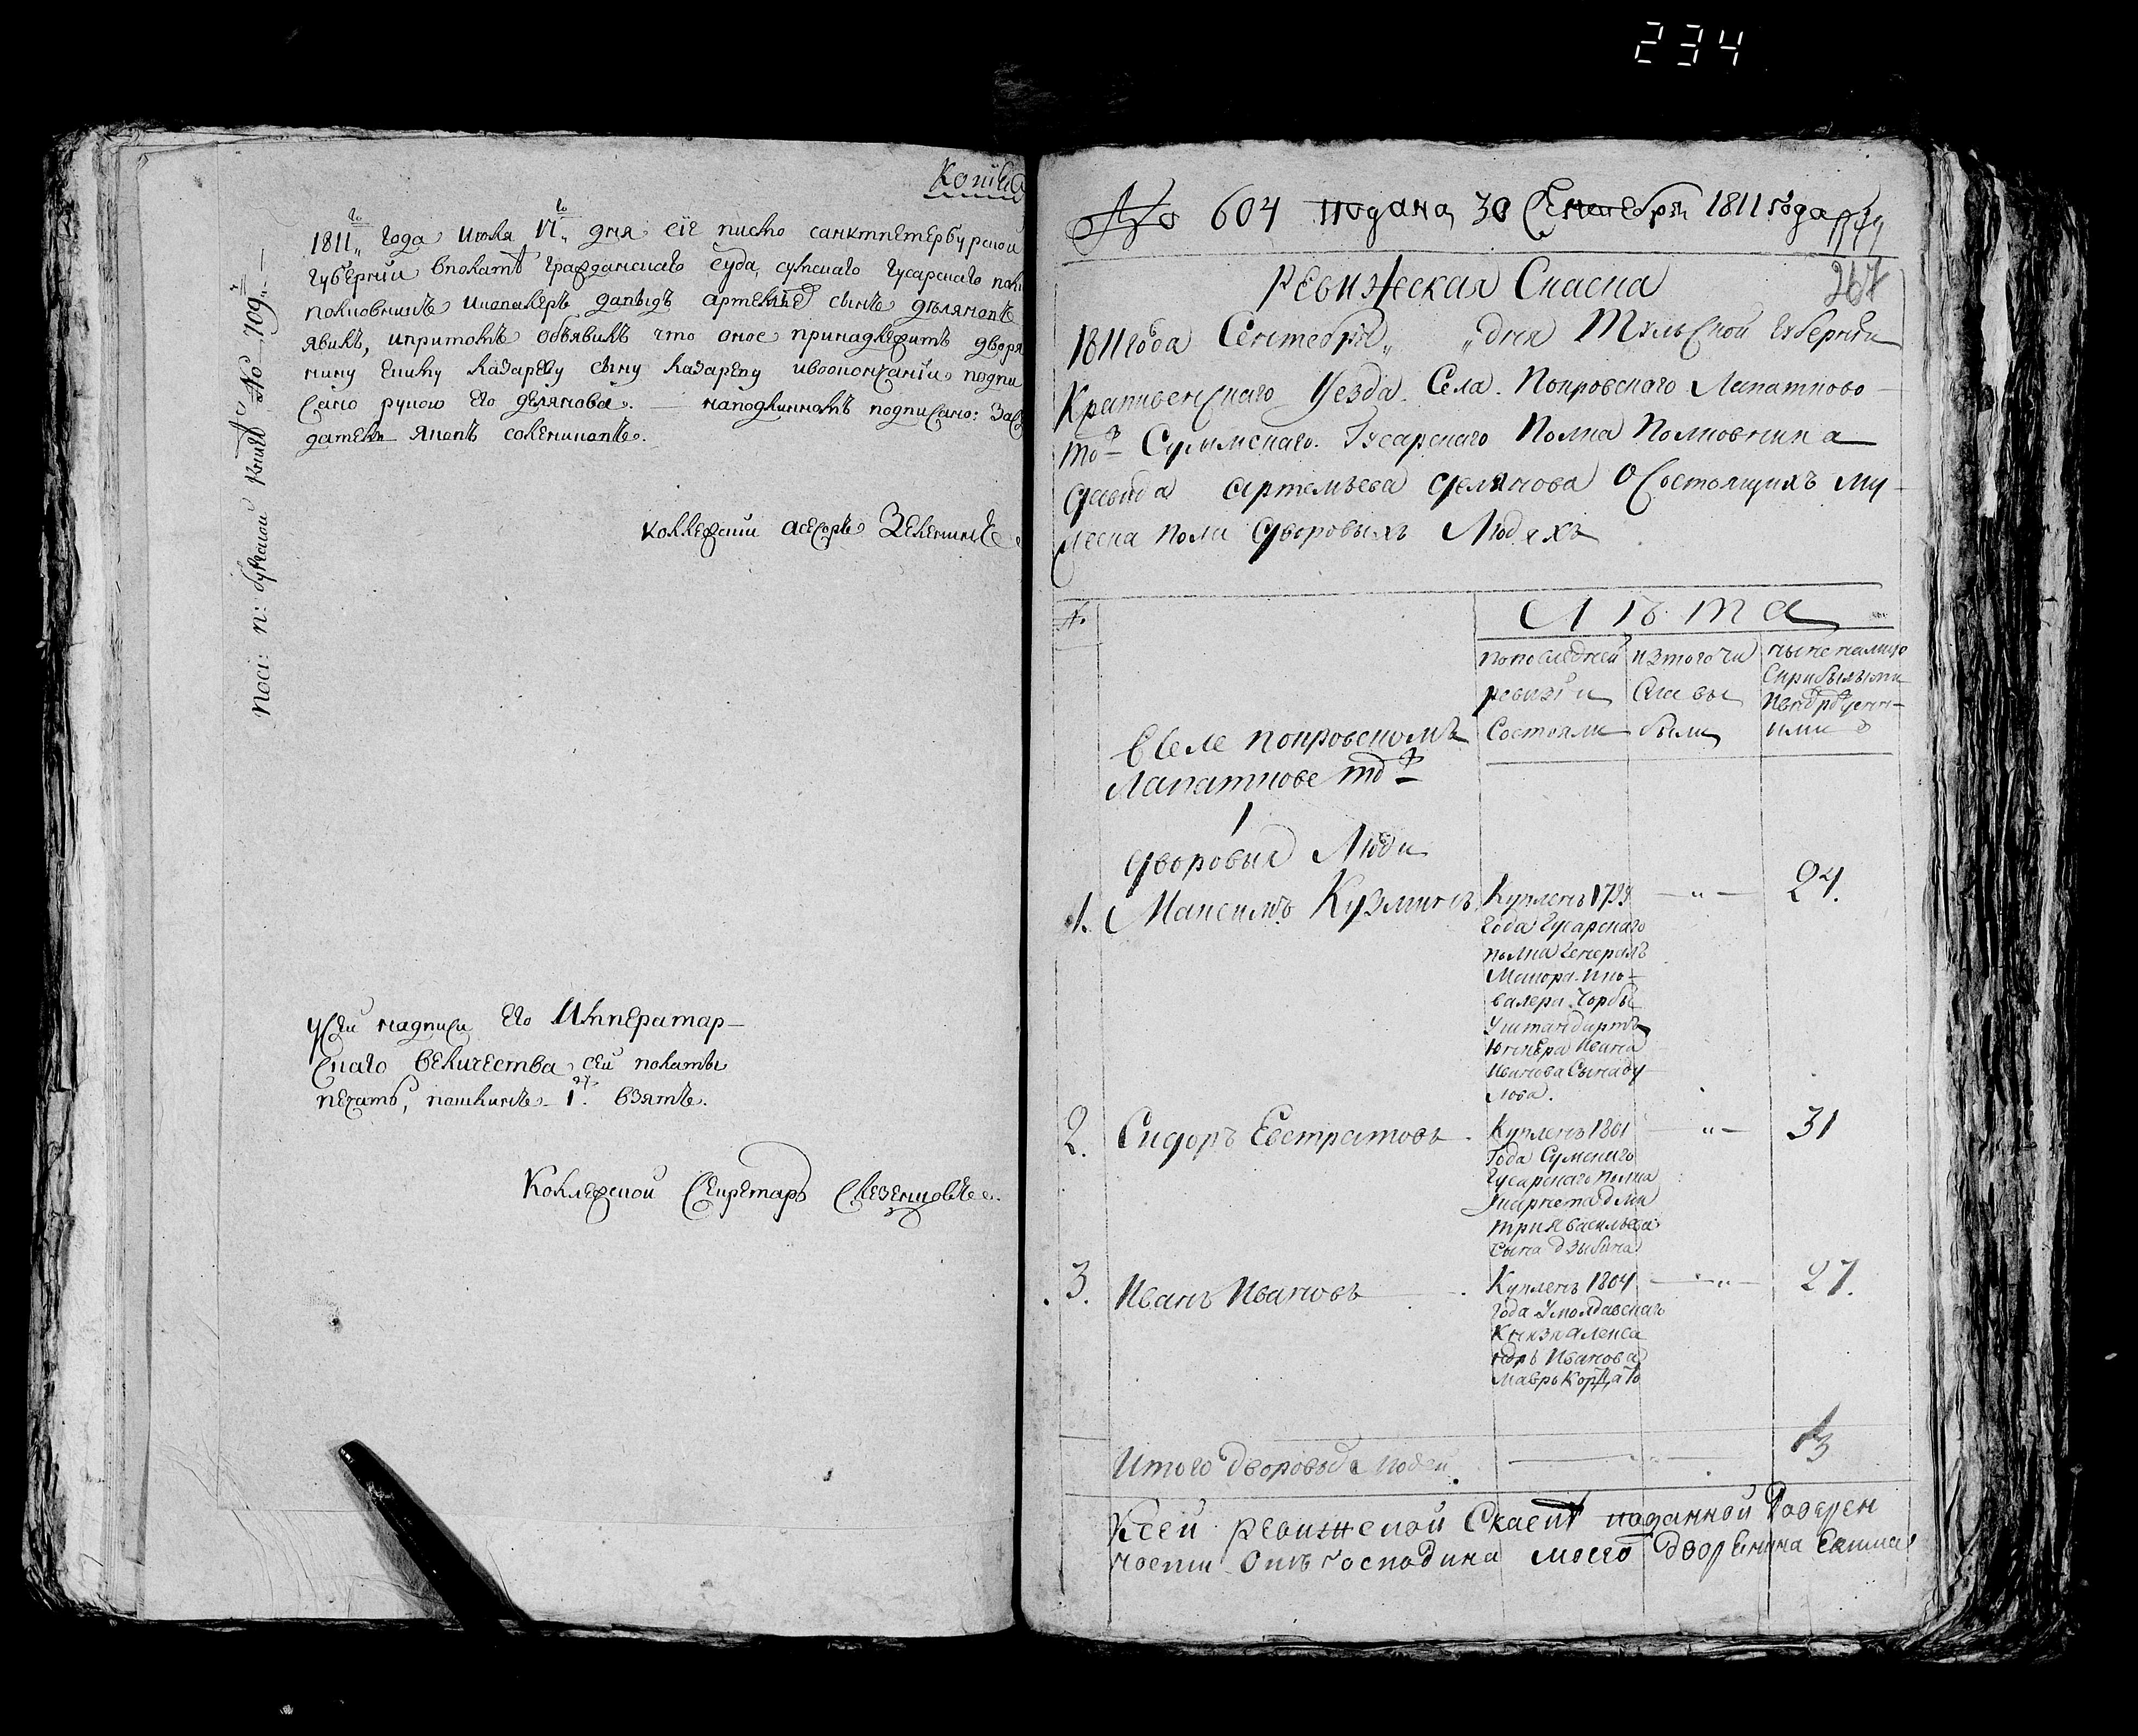 234
Копия
1811го года Июня 17го дня сіе писмо санктпетербурской
губерніи впалатѣ гражданскаго суда, сумскаго гусарскаго пол
полковникъ икавалеръ давыдъ артемьевъ сынъ дѣляновъ
явилъ, ипритомъ объявилъ что оное принадлежитъ дворя
нину екиму лазареву сыну лазареву ивоокончаніи подпи
сано рукою его делянова. — наподлинномъ подписано: Засѣ
датель
коллежский асесоръ Зеленинъ
поси: п: букаюй книгѣ No 709.
Усей надписи Его Император-
скаго величества сей палаты
печать, пошлинъ 1. взятъ.
Коллежской секретарь
No 604 подана 30 Сентебря 1811 года
267
Ревижская Скаска
1811 года Сентебря „ „ дня Тульской губерніи
Крапивенскаго Уезда Села Покровскаго Лапатково
тожъ Сумскаго Гусарскаго Полка Полковника
Давида Артемьева Делянова О Состоящихъ му-
ска пола Дворовыхъ Людяхъ
№
Лѣта
попоследней
ревизіи
Состояли
изтого чи
сла вы
были
ныне налицо
Сприбылыми
ивновьрожденн-
ыми
вселе покровскомъ
Лапаткове тожъ
1
Дворовыя Люди
1. Максимъ Кузминъ
Купленъ 1799
года Гусарскаго
полка Генералъ
Маиора ико-
валера Чорбы
Уштандартъ
Юнкера Ивана
Иванова Сына бу
лова.
— „ —
24.
2. Сидоръ Евстратовъ
Купленъ 1801
года Сумскаго
Гусарскаго полка
Укарнета дми
трия васильева
сына дзыбина
— „ —
31
3. Иванъ Ивановъ
Купленъ 1804
года Умолдавскаго
Князя алекса
ндръ Иванова
Маврь Кордато
— „ —
27.
Итого дворовыхъ людей
3
Ксей ревижской Скаске поданной Доверен
ности Отъ господина моего дворенина Екима